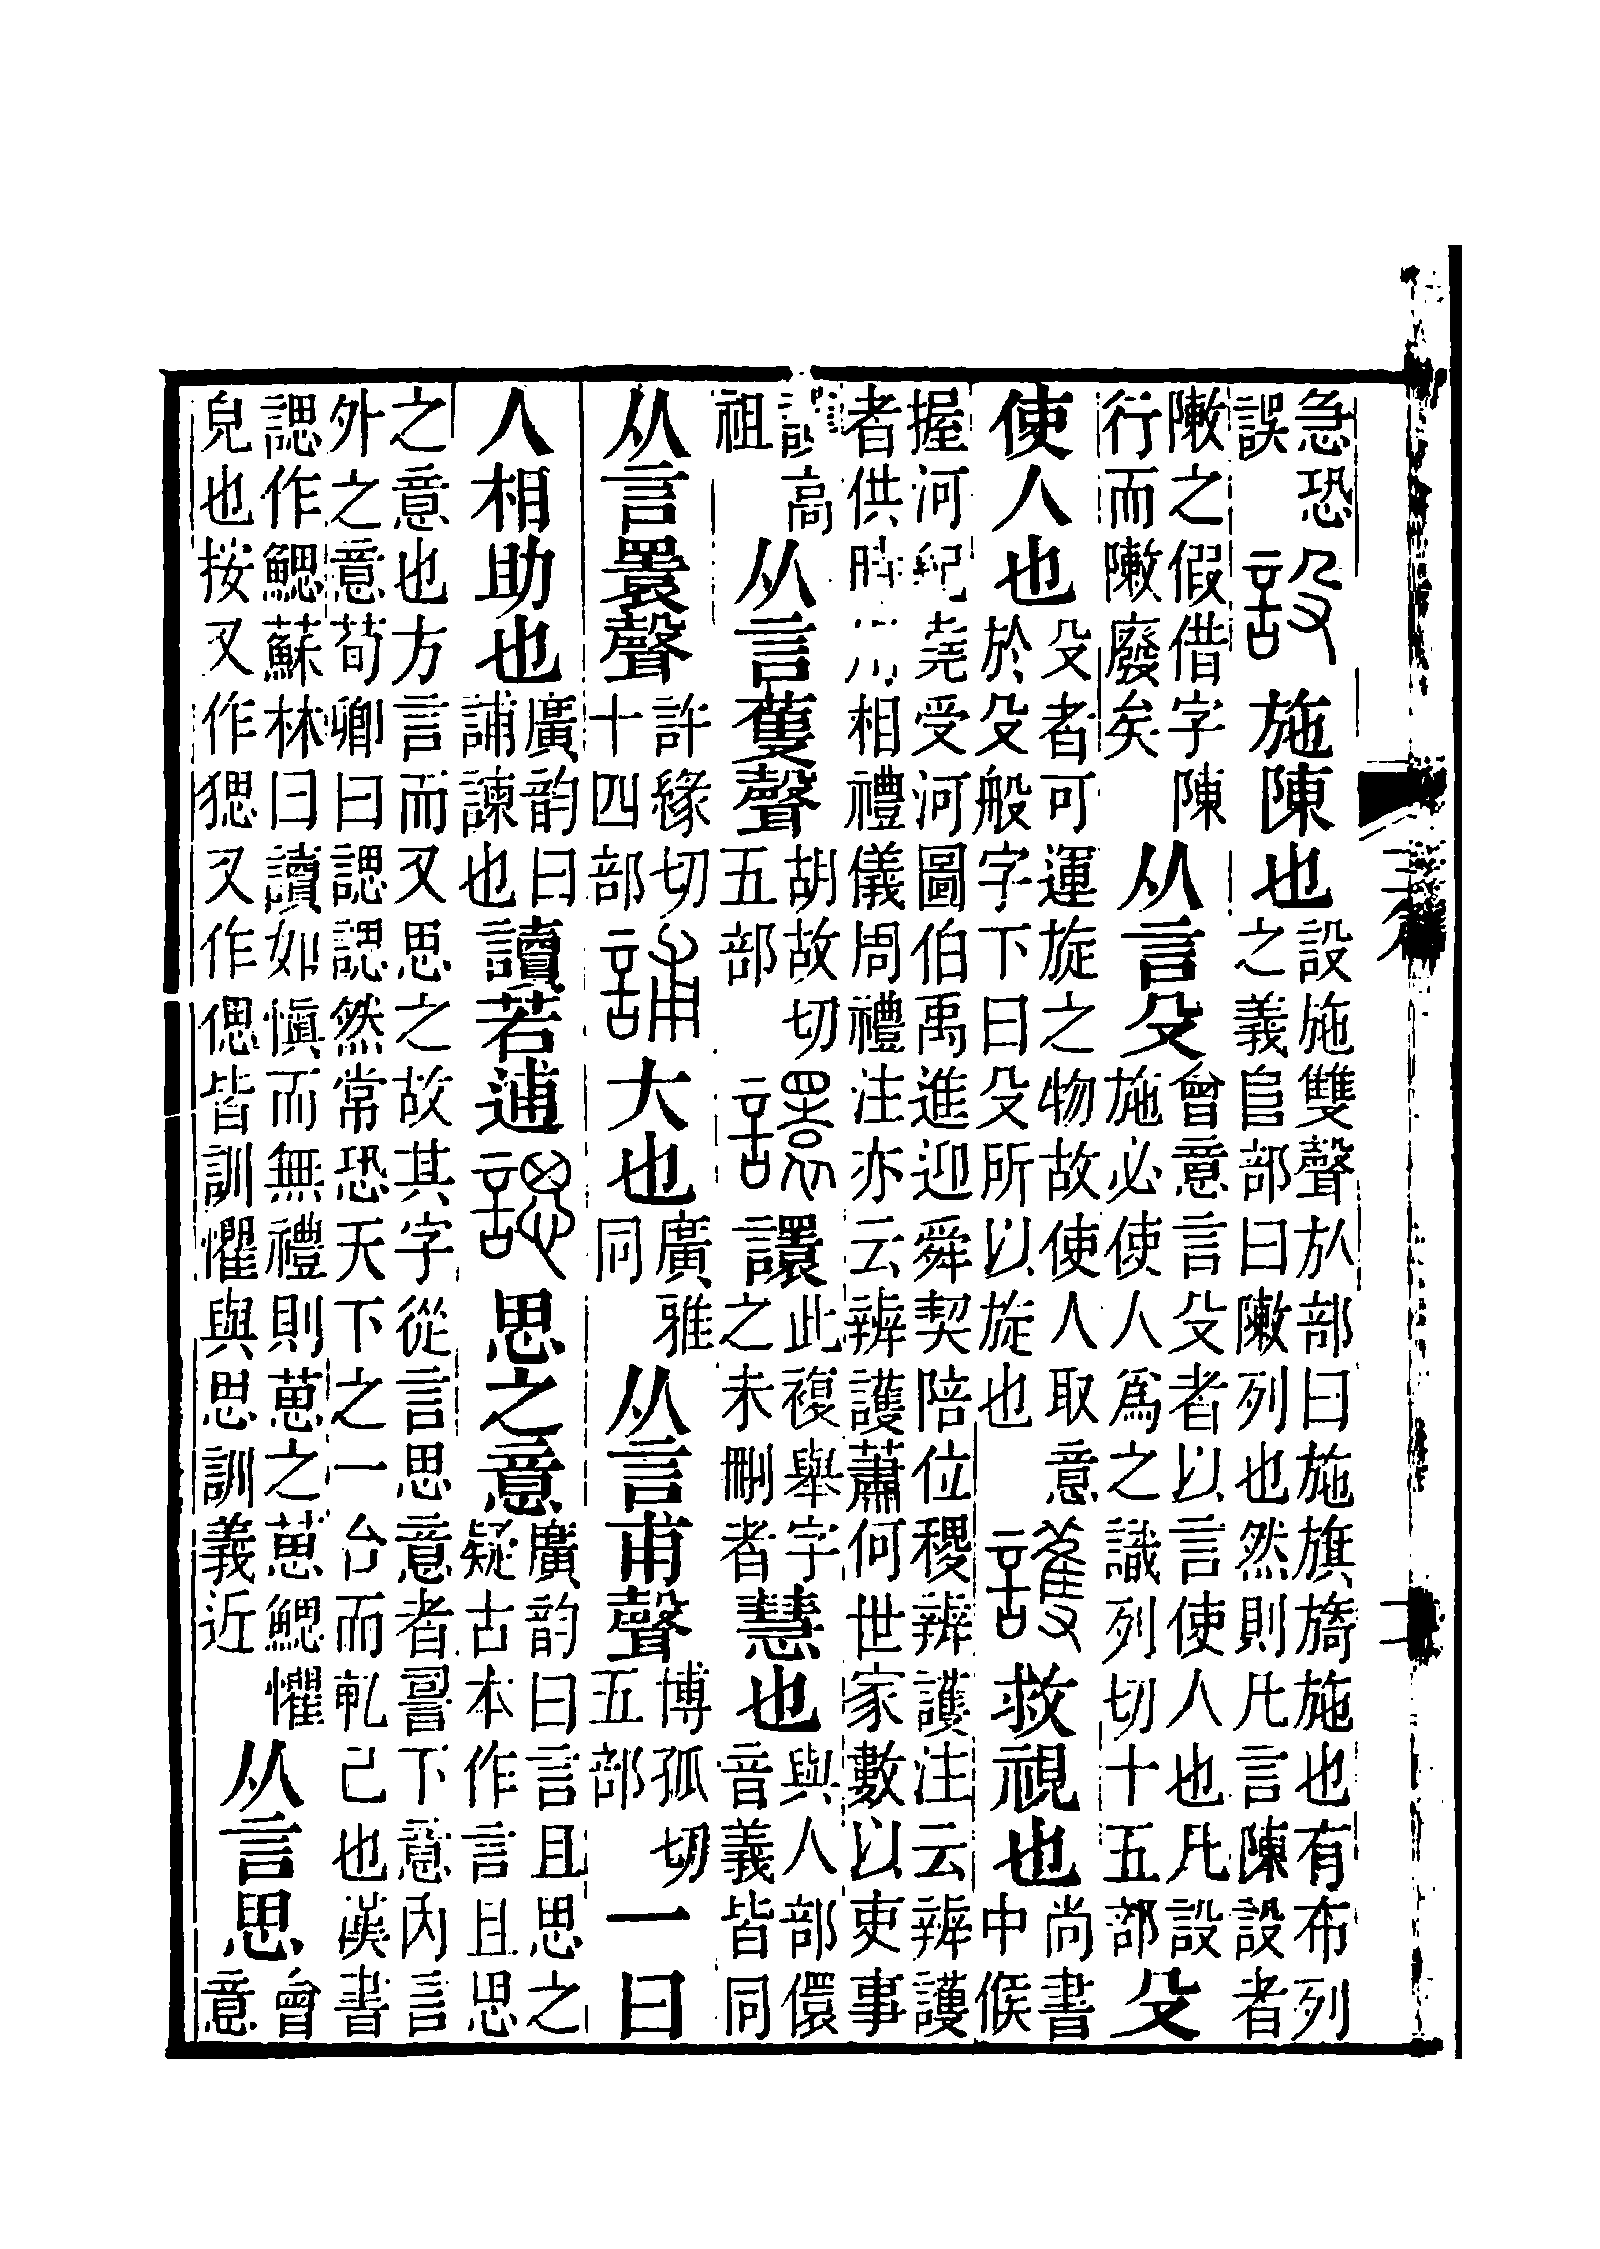 急恐誤設施陳也設施雙聲㫃部曰施旗旖施也有布列之義𨸏部曰敶列也然則凡言陳設者
敶之假借字陳行而敶廢矣从言殳會意言殳者以言使人也凡設施必使人爲之識列切十五部殳
使人也殳者可運旋之物故使人取意於殳般字下曰殳所以旋也護救視也尚書中候
握河紀堯受河圖伯禹進迎舜契陪位稷辨護注云辨護者供時相禮儀周禮注亦云辨護蕭何世家數以吏事
護高祖从言蒦聲胡故切五部譞譞此複舉字之未刪者慧也與人部儇音義皆同
从言睘聲許緣切十四部誧大也廣雅同从言甫聲博孤切五部一曰
人相助也廣韵曰誧諫也讀若逋諰思之意廣韵曰言且思之疑古本作言且思
之意也方言而又思之故其字從言思意者䛐下意內言外之意荀卿曰諰諰然常恐天下之一合而軋己也漢書
諰作鰓蘇林曰讀如愼而無禮則葸之葸鰓懼皃也按又作𤟧又作偲皆訓懼與思訓義近从言思會意